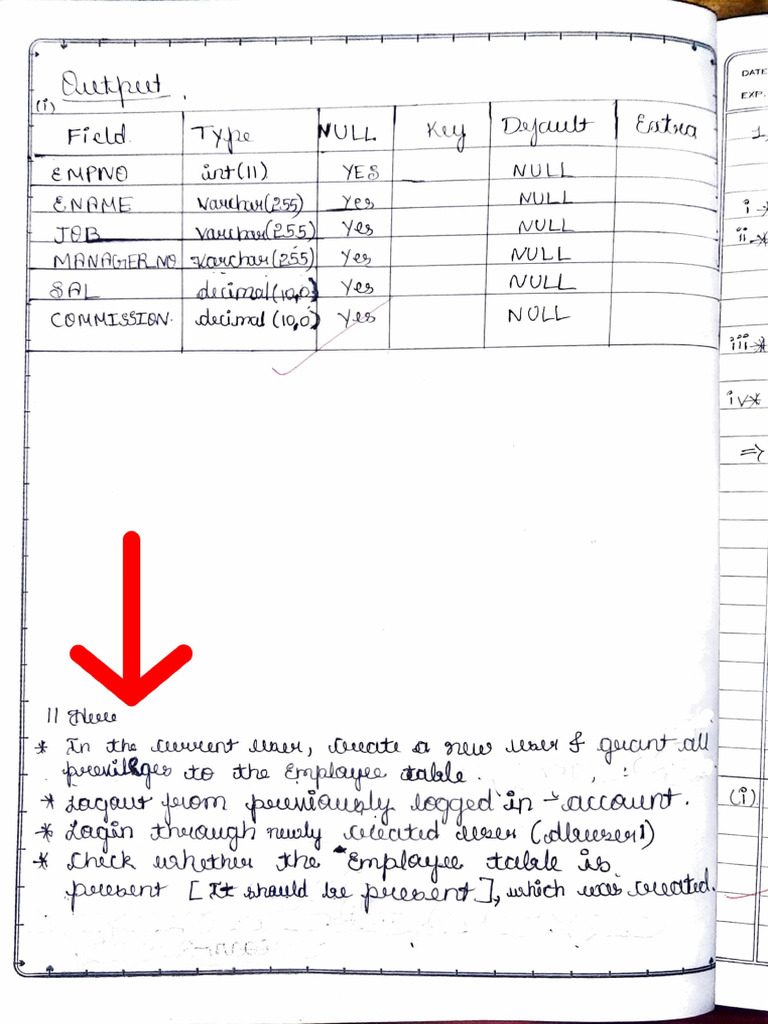 Output.
(i)
Field. Type NULL Key Default Extra
EMPNO int(11) YES NULL
ENAME varchar(255) Yes NULL
JOB varchar(255) Yes NULL
MANAGERNO varchar(255) Yes NULL
SAL decimal(10,0) Yes NULL
COMMISSION. decimal(10,0) Yes NULL
// Here
* In the current user, create a new user & grant all
previleges to the Employee table.
* Logout from previously logged in account.
* Login through newly created user (dbuser1)
* Check whether the Employee table is
present [It should be present], which was created.
DATE
EXP.
1.
i →*
ii →*
iii →*
iv →*
⇒
(i)